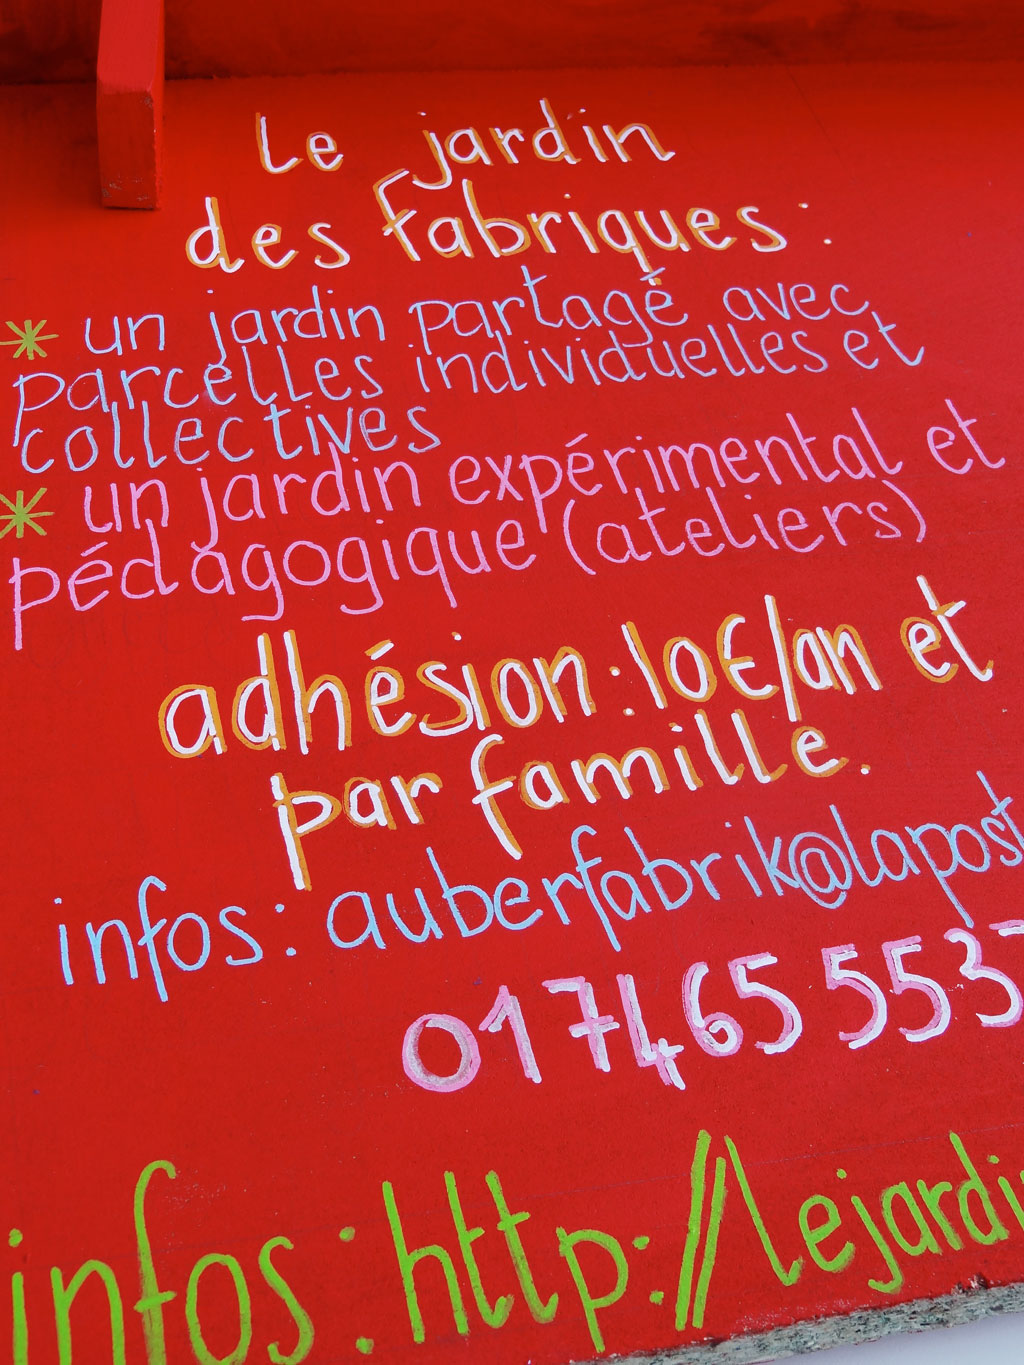 Le jardin
des fabriques :
* un jardin partagé avec
parcelles individuelles et
collectives
* un jardin expérimental et
pédagogique (ateliers)
adhésion : 10€/an et
par famille.
infos : auberfabrik@lapost
01 74 65 55 3
infos : http://lejardi